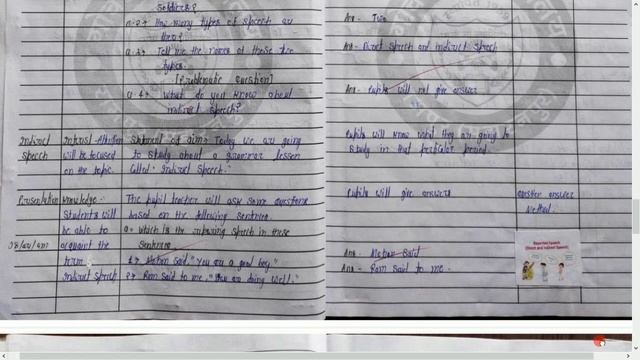 Soldiers?
Q.2→ How many types of Speech are
there?
Q.3→ Tell me the names of these two
types.
[Problematic Question]
Q.4→ What do you know about
indirect speech?
Indirect
Speech
Interest - Attention
will be focused
on the topic
Statement of aim→ Today we are going
to study about a grammar lesson
called "Indirect Speech."
Presentation
Knowledge:-
Students will
be able to
acquaint the
term
Indirect Speech
The pupil teacher will ask some questions
based on the following sentence.
Q= Which is the reporting speech in these
Sentence
1→ Mohan Said, "You are a good boy."
2→ Ram Said to me, "You are doing well."
Ans - Two
Ans - Direct Speech and indirect Speech
Ans - Pupils will not give answer
Pupils will know what they are going to
study in that particular period.
Pupils will give answers
Question answer
Method.
Ans - Mohan Said
Ans - Ram Said to me.
Reported Speech
(Direct and Indirect Speech)